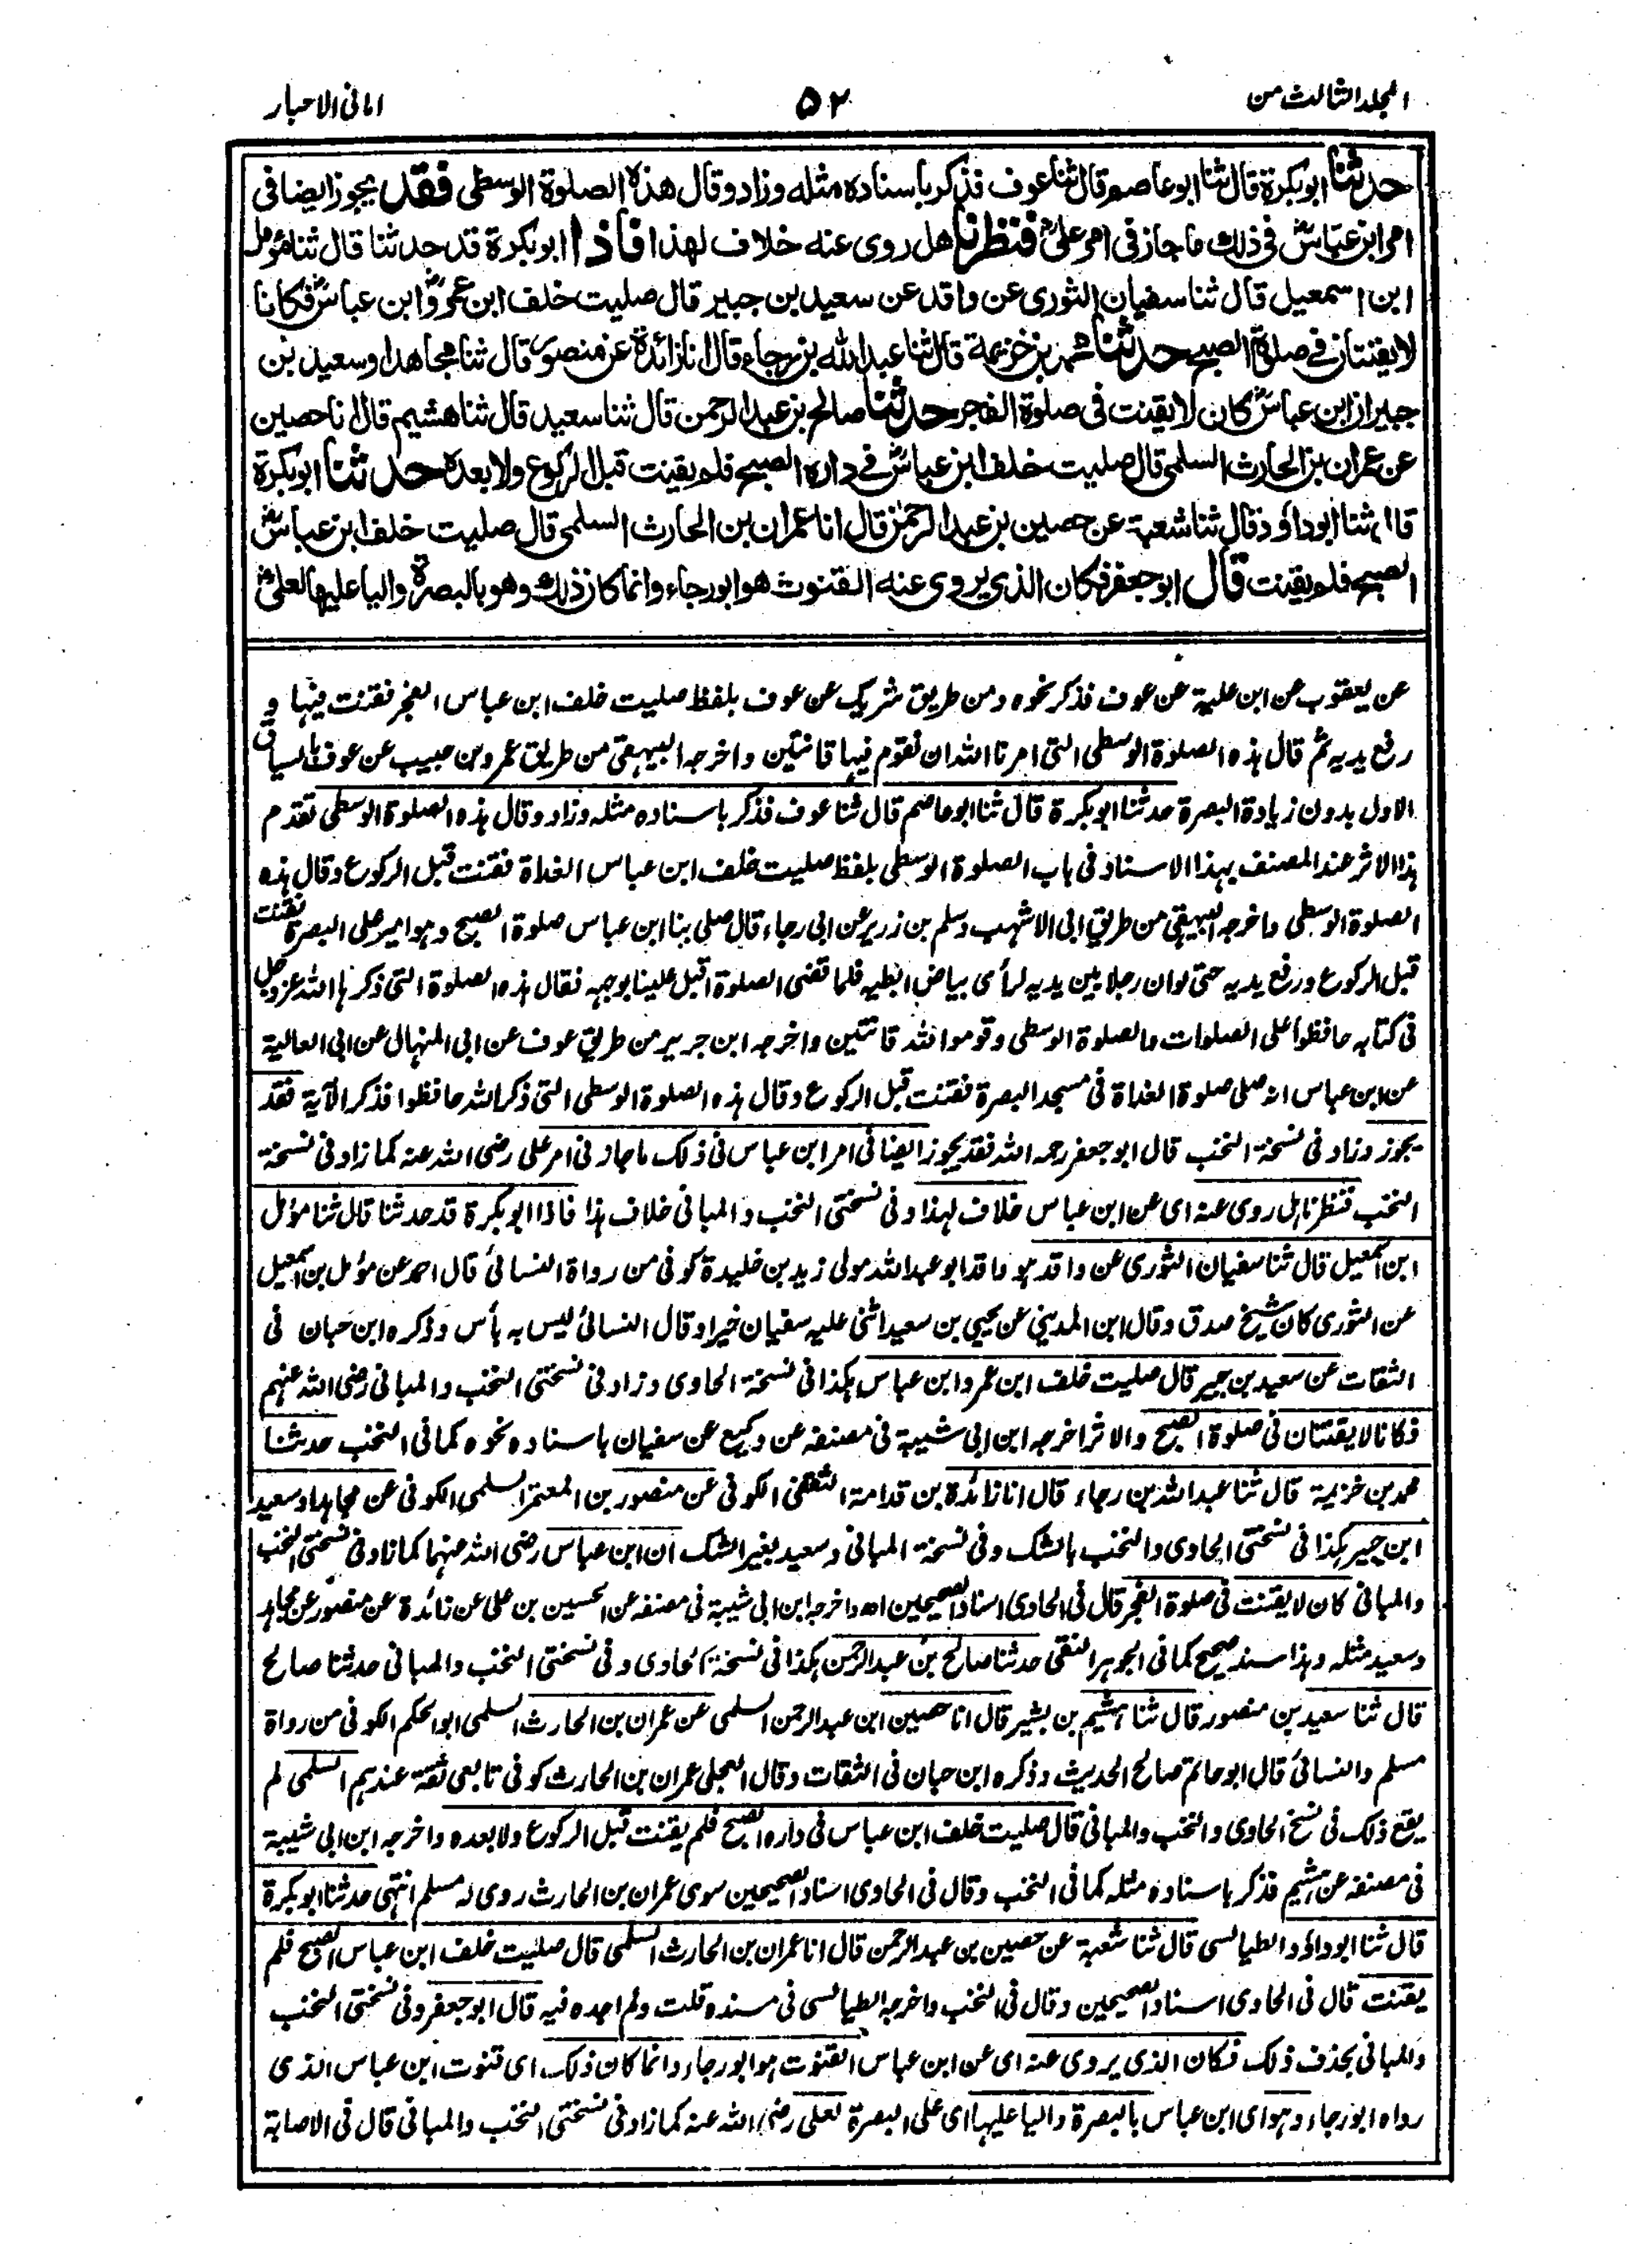 المجلد الثالث من
۵۲
امانی الاحبار
حدثنا ابو بکرۃ قال ثنا ابو عاصم قال ثنا عوف فذکر باسنادہ مثلہ وزاد وقال ھذہ الصلوۃ الوسطی فقد یجوز ایضا فی
امر ابن عباسؓ فی ذلک ما جاز فی امر علیؓ فنظرنا ھل روی عنہ خلاف لھذا فاذا ابو بکرۃ قد حدثنا قال ثنا مؤمل
ابن اسمعیل قال ثنا سفیان الثوری عن واقد عن سعید بن جبیر قال صلیت خلف ابن عمرؓ وابن عباسؓ فکانا
لا یقنتان فی صلوۃ الصبح حدثنا محمد بن خزیمۃ قال ثنا عبد اللہ بن رجاء قال انا زائدۃ عن منصور قال ثنا مجاھد او سعید بن
جبیر ان ابن عباسؓ کان لا یقنت فی صلوۃ الفجر حدثنا صالح بن عبد الرحمن قال ثنا سعید قال ثنا ھشیم قال انا حصین
عن عمران بن الحارث السلمی قال صلیت خلف ابن عباسؓ فی دارہ الصبح فلم یقنت قبل الرکوع ولا بعدہ حدثنا ابو بکرۃ
قال ثنا ابو داؤد قال ثنا شعبۃ عن حصین بن عبد الرحمن قال انا عمران بن الحارث السلمی قال صلیت خلف ابن عباسؓ
الصبح فلم یقنت قال ابو جعفر فکان الذی یروی عنہ القنوت ھو ابو رجاء وانما کان ذلک وھو بالبصرۃ والیا علیھا لعلیؓ
عن یعقوب عن ابن علیۃ عن عوف فذکر نحوہ ومن طریق شریک عن عوف بلفظ صلیت خلف ابن عباس الفجر فقنت فیہا و
رفع یدیہ ثم قال ہذہ الصلوۃ الوسطی التی امرنا اللہ ان نقوم فیہا قانتین واخرجہ البیہقی من طریق عمرو بن حبیب عن عوف بالسیاق
الاول بدون زیادۃ البصرۃ حدثنا ابو بکرۃ قال ثنا ابو عاصم قال ثنا عوف فذکر باسنادہ مثلہ وزاد وقال ہذہ الصلوۃ الوسطی تقدم
ہذا الاثر عند المصنف بہذا الاسناد فی باب الصلوۃ الوسطی بلفظ صلیت خلف ابن عباس الغداۃ فقنت قبل الرکوع وقال ہذہ
الصلوۃ الوسطی واخرجہ البیہقی من طریق ابی الاشہب وسلم بن زریر عن ابی رجاء قال صلی بنا ابن عباس صلوۃ الصبح وہو امیر علی البصرۃ فقنت
قبل الرکوع ورفع یدیہ حتی لو ان رجلا بین یدیہ لرأی بیاض ابطیہ فلما قضی الصلوۃ اقبل علینا بوجہہ فقال ہذہ الصلوۃ التی ذکرہا اللہ عز وجل
فی کتابہ حافظوا علی الصلوات والصلوۃ الوسطی وقوموا للہ قانتین واخرجہ ابن جریر من طریق عوف عن ابی المنہال عن ابی العالیۃ
عن ابن عباس انہ صلی صلوۃ الغداۃ فی مسجد البصرۃ فقنت قبل الرکوع وقال ہذہ الصلوۃ الوسطی التی ذکر اللہ حافظوا فذکر الآیۃ فقد
یجوز وزاد فی نسخۃ النخب قال ابو جعفر رحمہ اللہ فقد یجوز ایضا فی امر ابن عباس فی ذلک ما جاز فی امر علی رضی اللہ عنہ کما زاد فی نسخۃ
النخب فنظرنا ہل روی عنہ ای عن ابن عباس خلاف لہذا وفی نسختی النخب والمبانی خلاف ہذا فاذا ابو بکرۃ قد حدثنا قال ثنا مؤمل
ابن اسمعیل قال ثنا سفیان الثوری عن واقد ہو واقد ابو عبد اللہ مولی زید بن خلیدۃ کوفی من رواۃ النسائی قال احمد عن مؤمل بن اسمعیل
عن الثوری کان شیخ صدق وقال ابن المدینی عن یحیی بن سعید اثنی علیہ سفیان خیرا وقال النسائی لیس بہ بأس وذکرہ ابن حبان فی
الثقات عن سعید بن جبیر قال صلیت خلف ابن عمر وابن عباس ہکذا فی نسخۃ الحاوی وزاد فی نسختی النخب والمبانی رضی اللہ عنہم
فکانا لا یقنتان فی صلوۃ الصبح والاثر اخرجہ ابن ابی شیبۃ فی مصنفہ عن وکیع عن سفیان باسنادہ نحوہ کما فی النخب حدثنا
محمد بن خزیمۃ قال ثنا عبد اللہ بن رجاء قال انا زائدۃ بن قدامۃ الثقفی الکوفی عن منصور بن المعتمر السلمی الکوفی عن مجاہد او سعید
ابن جبیر ہکذا فی نسختی الحاوی والنخب بالشک وفی نسخۃ المبانی وسعید بغیر الشک ان ابن عباس رضی اللہ عنہما کما زاد فی نسختی النخب
والمبانی کان لا یقنت فی صلوۃ الفجر قال فی الحاوی اسناد الصحیحین اھ واخرجہ ابن ابی شیبۃ فی مصنفہ عن الحسین بن علی عن زائدۃ عن منصور عن مجاہد
وسعید مثلہ وہذا سند صحیح کما فی الجوہر النقی حدثنا صالح بن عبد الرحمن ہکذا فی نسخۃ الحاوی وفی نسختی النخب والمبانی حدثنا صالح
قال ثنا سعید بن منصور قال ثنا ہشیم بن بشیر قال انا حصین ابن عبد الرحمن السلمی عن عمران بن الحارث السلمی ابو الحکم الکوفی من رواۃ
مسلم والنسائی قال ابو حاتم صالح الحدیث وذکرہ ابن حبان فی الثقات وقال العجلی عمران بن الحارث کوفی تابعی ثقۃ عندہم السلمی لم
یقع ذلک فی نسخ الحاوی والنخب والمبانی قال صلیت خلف ابن عباس فی دارہ الصبح فلم یقنت قبل الرکوع ولا بعدہ واخرجہ ابن ابی شیبۃ
فی مصنفہ عن ہشیم فذکر باسنادہ مثلہ کما فی النخب وقال فی الحاوی اسناد الصحیحین سوی عمران بن الحارث روی لہ مسلم انتہی حدثنا ابو بکرۃ
قال ثنا ابو داؤد الطیالسی قال ثنا شعبۃ عن حصین بن عبد الرحمن قال انا عمران بن الحارث السلمی قال صلیت خلف ابن عباس الصبح فلم
یقنت قال فی الحاوی اسناد الصحیحین وقال فی النخب واخرجہ الطیالسی فی مسندہ قلت ولم اجدہ فیہ قال ابو جعفر وفی نسختی النخب
والمبانی بحذف ذلک فکان الذی یروی عنہ ای عن ابن عباس القنوت ہو ابو رجاء وانما کان ذلک ای قنوت ابن عباس الذی
رواہ ابو رجاء وہو ای ابن عباس بالبصرۃ والیا علیہا ای علی البصرۃ لعلی رضی اللہ عنہ کما زاد فی نسختی النخب والمبانی قال فی الاصابۃ